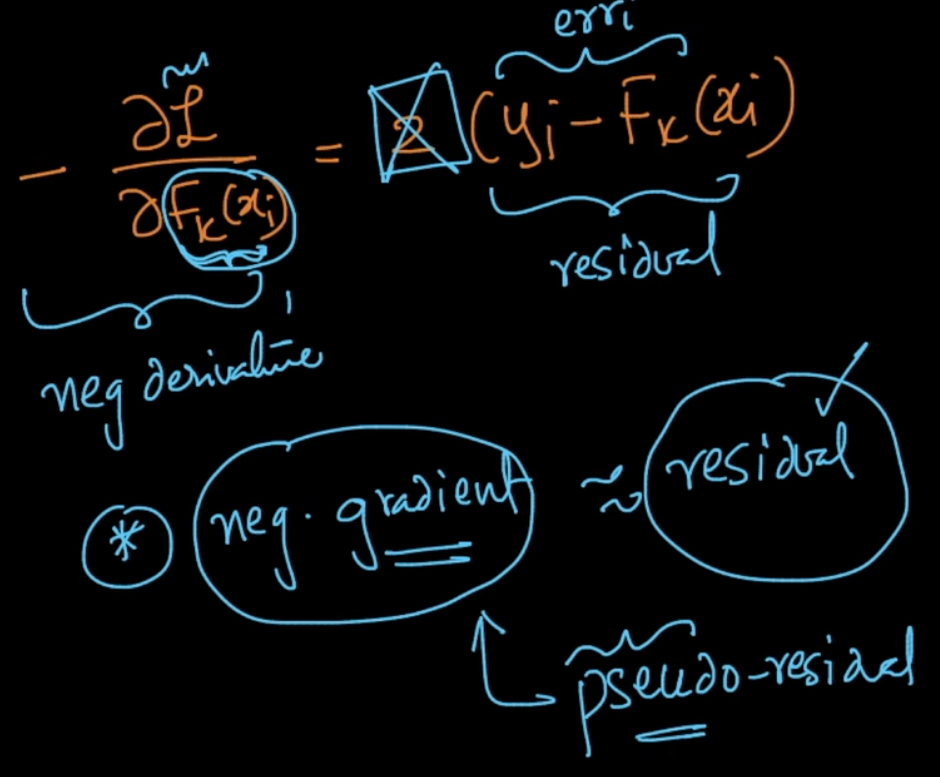 erri
- ∂L / ∂F_k(x_i) = 2 (y_i - F_k(x_i))
residual
neg derivative
* neg. gradient ≈ residual
pseudo-residual